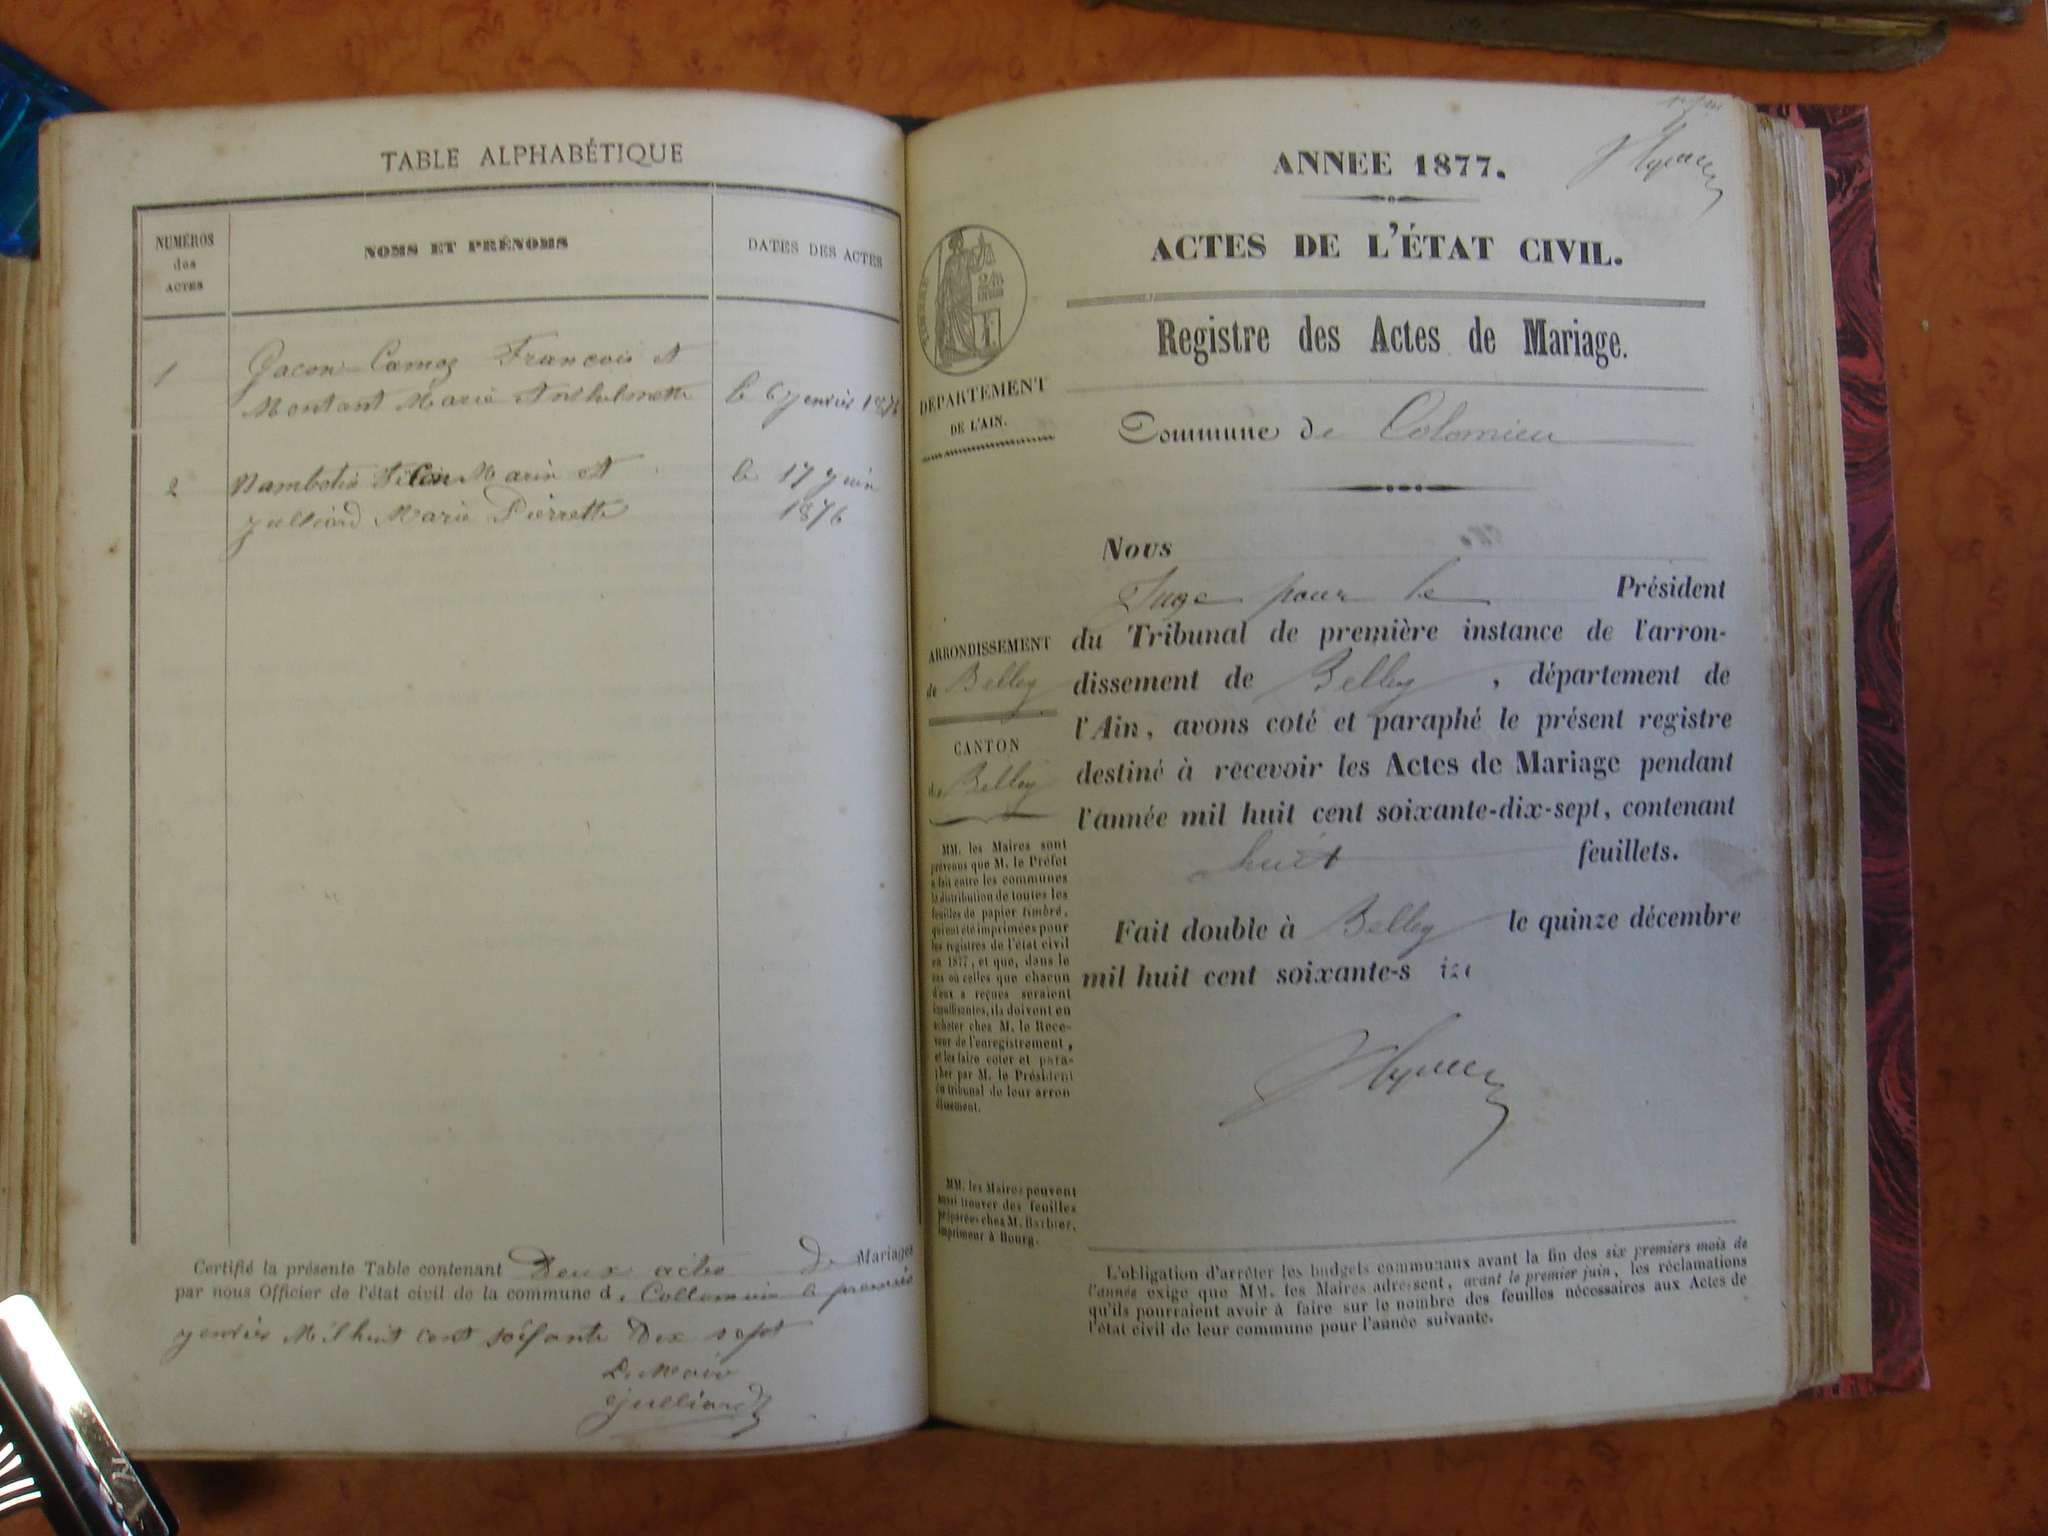 TABLE ALPHABÉTIQUE
NUMÉROS
des
ACTES
NOMS ET PRÉNOMS
DATES DES ACTES
1
Gacon Camoz Francois et
Montant Marie Anthelmette
le 6 jenvier 1876
2
Marin et
le 17 juin
Julliard Marie Pierrette
1876
Certifié la présente Table contenant Deux actes De Mariages
par nous Officier de l'état civil de la commune d. Collomieu le premier
jenvier Mil huit cent soisante Dix sept
Le Maire
Julliard
ANNEE 1877.
ACTES DE L'ÉTAT CIVIL.
Registre des Actes de Mariage.
DEPARTEMENT
DE L'AIN.
Commune de Colomieu
Nous
Juge pour le Président
du Tribunal de première instance de l'arron-
dissement de Belley, département de
l'Ain, avons coté et paraphé le présent registre
destiné à recevoir les Actes de Mariage pendant
l'année mil huit cent soixante-dix-sept, contenant
huit feuillets.
Fait double à Belley le quinze décembre
mil huit cent soixante-s ize
ARRONDISSEMENT
de Belley
CANTON
de Belley
MM. les Maires sont
prévenus que M. le Préfet
a fait entre les communes
la distribution de toutes les
feuilles de papier timbré,
qui ont été imprimées pour
les registres de l'état civil
en 1877, et que, dans le
cas où celles que chacun
d'eux a reçues seraient
insuffisantes, ils doivent en
acheter chez M. le Rece-
veur de l'enregistrement,
et les faire coter et para-
pher par M. le Président
du tribunal de leur arron
dissement.
MM. les Maires peuvent
aussi trouver des feuilles
préparées chez M. Barbier,
imprimeur à Bourg.
L'obligation d'arrêter les budgets communaux avant la fin des six premiers mois de
l'année exige que MM. les Maires adressent, avant le premier juin, les réclamations
qu'ils pourraient avoir à faire sur le nombre des feuilles nécessaires aux Actes de
l'état civil de leur commune pour l'année suivante.